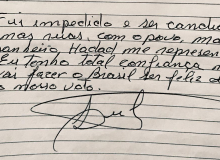 fui impedido e ser candi
mas ruas, com o povo, ma
anheiro Hadad me represen
Eu tenho total confiança
vai fazer o Brasil ser feliz d
o nosso voto.